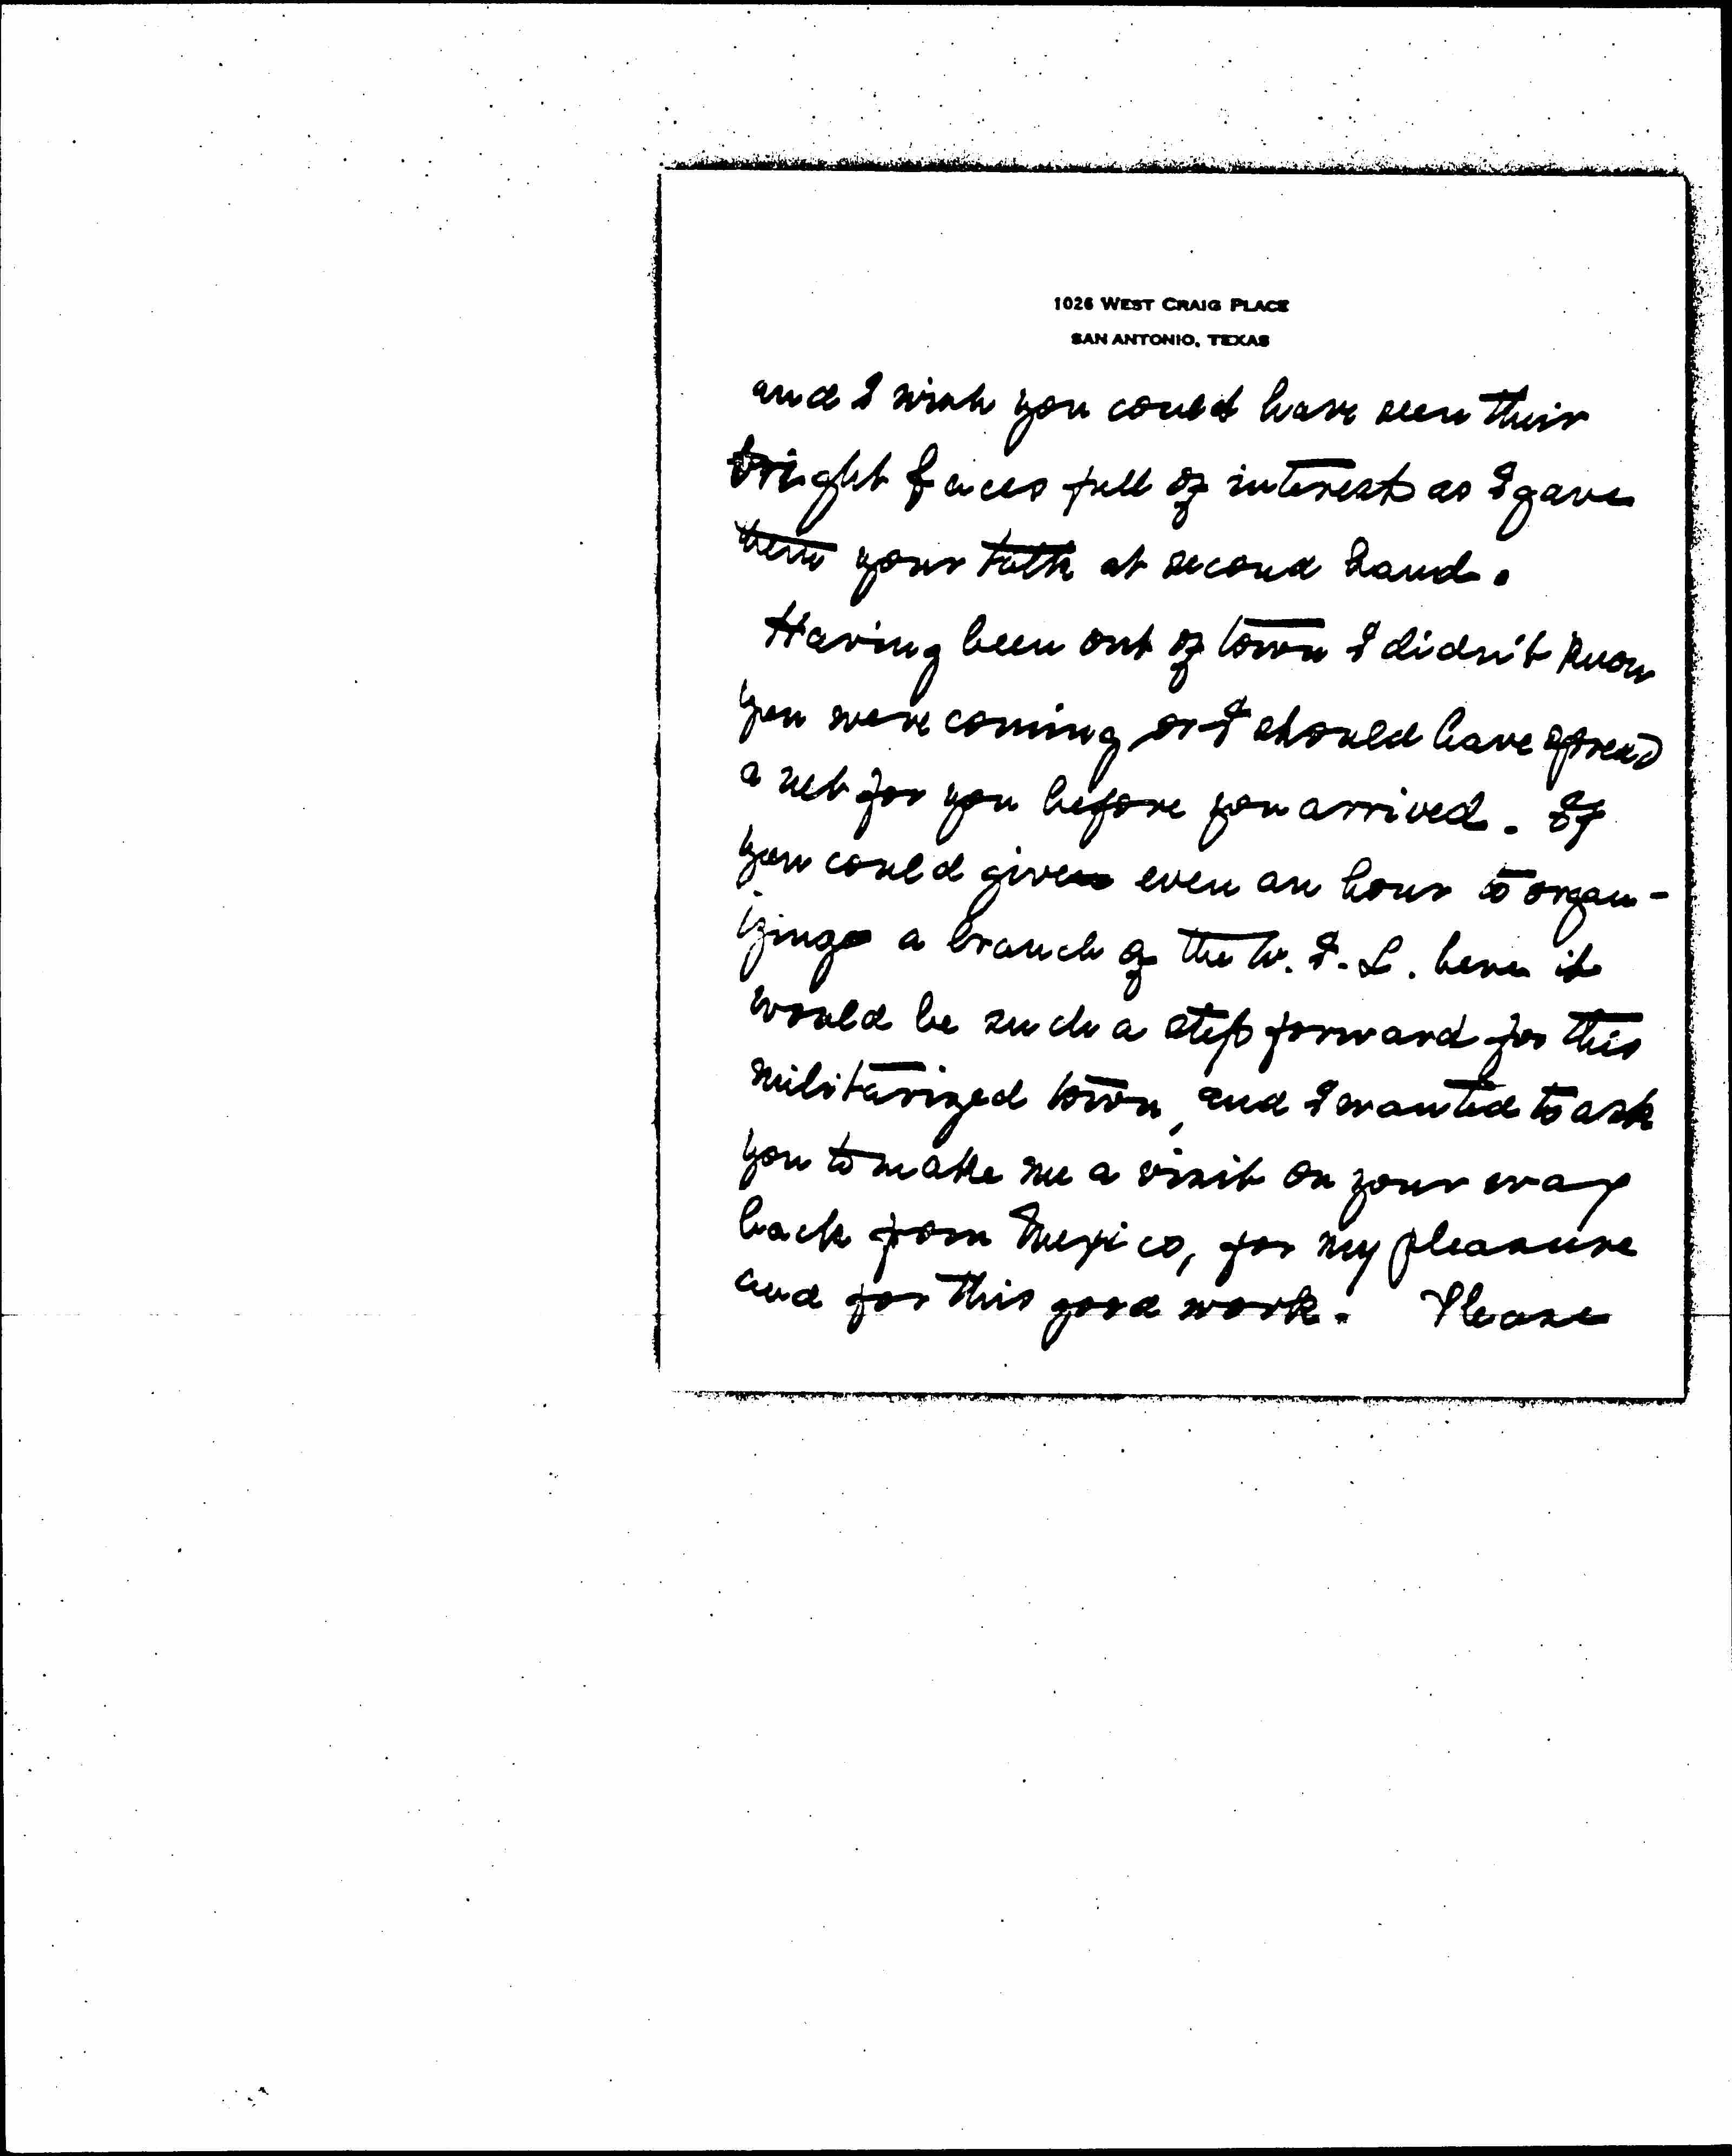 1026 WEST CRAIG PLACE
SAN ANTONIO, TEXAS
and I wish you could have seen their
bright faces full of interest as I gave
them your talk at second hand.
Having been out of town I didn't know
you were coming or I should have spread
a net for you before you arrived. If
you could give even an hour to organ-
izing a branch of the W. I. L. here it
would be such a step forward for this
militarized town, and I wanted to ask
you to make me a visit on your way
back from Mexico, for my pleasure
and for this good work. Please